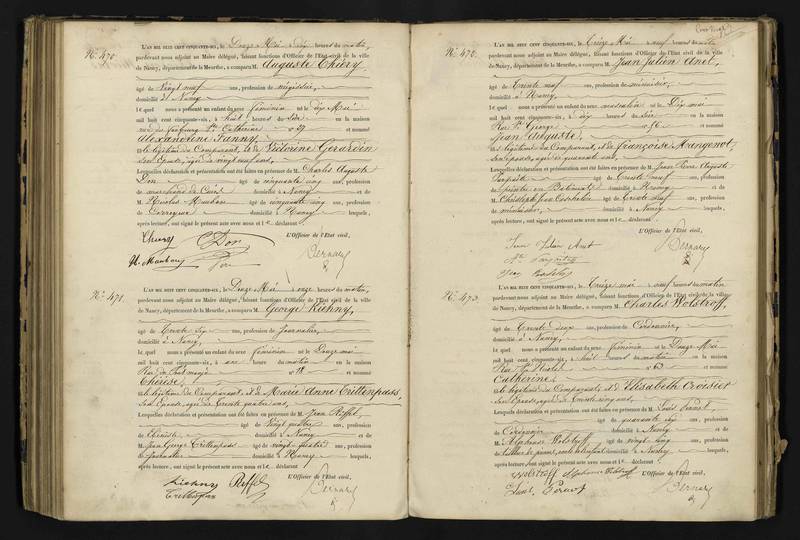 N°. 470.
L'AN MIL HUIT CENT CINQUANTE-SIX, le Douze Mai à dix heures du matin,
pardevant nous adjoint au Maire délégué, faisant fonctions d'Officier de l'Etat civil de la ville
de Nancy, département de la Meurthe, a comparu M. Auguste Thiery
âgé de Vingt neuf ans, profession de
domicilié à Nancy
lequel nous a présenté un enfant du sexe féminin né le dix Mai
mil huit cent cinquante-six, à huit heures du soir en la maison
rue du faubourg Ste Catherine n° 27 et nommé
Alexandrine Fanny,
fille légitime du Comparant, et de Victorine Gerardin
son Epouse, âgée de vingt neuf ans,
Lesquelles déclaration et présentation ont été faites en présence de M. Charles Auguste
Don âgé de cinquante cinq ans, profession
de marchand de Cuirs domicilié à Nancy et de
M. Nicolas Maubon âgé de cinquante cinq ans, profession
de domicilié à Nancy lesquels,
après lecture, ont signé le présent acte avec nous et le déclarant
L'Officier de l'Etat civil,
Thiery Don
N. Maubon
Bernard
N°. 471.
L'AN MIL HUIT CENT CINQUANTE-SIX, le Douze Mai à onze heures du matin,
pardevant nous adjoint au Maire délégué, faisant fonctions d'Officier de l'Etat civil de la ville
de Nancy, département de la Meurthe, a comparu M. George Kichny,
âgé de Trente six ans, profession de Journalier,
domicilié à Nancy,
lequel nous a présenté un enfant du sexe féminin né le Douze mai
mil huit cent cinquante-six, à une heure du matin en la maison
Rue du n° 18 et nommé
Thérèse,
fille légitime du Comparant, et de Marie Anne Trittenpass,
son Epouse, âgée de trente quatre ans,
Lesquelles déclaration et présentation ont été faites en présence de M. Jean Riffel,
âgé de Vingt quatre ans, profession
de domicilié à Nancy et de
M. Jean George Trittenpass âgé de vingt quatre ans, profession
de domicilié à Nancy lesquels,
après lecture, ont signé le présent acte avec nous et le déclarant
L'Officier de l'Etat civil,
Kichny Riffel
Trittenpass
Bernard
N°. 472.
L'AN MIL HUIT CENT CINQUANTE-SIX, le Treize Mai à neuf heures du matin
pardevant nous adjoint au Maire délégué, faisant fonctions d'Officier de l'Etat civil de la ville
de Nancy, département de la Meurthe, a comparu M. Jean Julien Anet,
âgé de Trente neuf ans, profession de menuisier,
domicilié à Nancy,
lequel nous a présenté un enfant du sexe masculin né le Dix mai
mil huit cent cinquante-six, à dix heures du soir en la maison
Rue St. George n° 56 et nommé
Jean Auguste,
fils légitime du Comparant, et de françoise Mangenot,
son épouse, âgée de quarante ans,
Lesquelles déclaration et présentation ont été faites en présence de M. Jean Pierre Auguste
âgé de Trente neuf ans, profession
de peintre en Batiments domicilié à Nancy et de
M. Christophe Jean âgé de Trente neuf ans, profession
de menuisier, domicilié à Nancy lesquels,
après lecture, ont signé le présent acte avec nous et le déclarant
L'Officier de l'Etat civil,
Jean Julien Anet
Bernard
N°. 473.
L'AN MIL HUIT CENT CINQUANTE-SIX, le Treize mai à neuf heures du matin
pardevant nous adjoint au Maire délégué, faisant fonctions d'Officier de l'Etat civil de la ville
de Nancy, département de la Meurthe, a comparu M. Charles Wolstroff,
âgé de Trente deux ans, profession de Cordonnier,
domicilié à Nancy,
lequel nous a présenté un enfant du sexe féminin né le Douze Mai
mil huit cent cinquante-six, à huit heures du matin en la maison
Rue St. Nicolas n° 63 et nommé
Catherine,
fille légitime du Comparant, et d'Elisabeth Croisier
son Epouse, âgée de trente cinq ans,
Lesquelles déclaration et présentation ont été faites en présence de M. Louis
âgé de quarante six ans, profession
de Cordonnier domicilié à Nancy et de
M. Alphonse Wolstroff âgé de vingt cinq ans, profession
de domicilié à Nancy lesquels,
après lecture, ont signé le présent acte avec nous et le déclarant
L'Officier de l'Etat civil,
Wolstroff Alphonse Wolstroff
Louis
Bernard